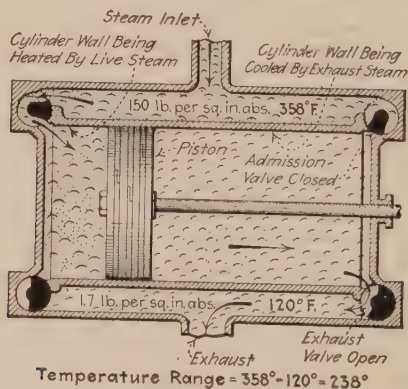 Steam Inlet
Cylinder Wall Being
Heated By Live Steam
Cylinder Wall Being
Cooled By Exhaust Steam
150 lb. per sq. in. abs. 358°F.
Piston
Admission
Valve Closed
1.7 lb. per sq. in. abs. 120°F.
Exhaust
Exhaust
Valve Open
Temperature Range = 358°-120°=238°